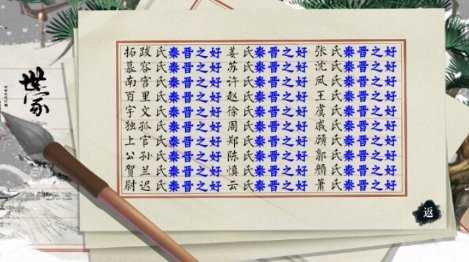 世家
拓跋氏秦晋之好 姜氏秦晋之好 张氏秦晋之好
慕容氏秦晋之好 苏氏秦晋之好 沈氏秦晋之好
南宫氏秦晋之好 许氏秦晋之好 凤氏秦晋之好
百里氏秦晋之好 赵氏秦晋之好 王氏秦晋之好
宇文氏秦晋之好 徐氏秦晋之好 虞氏秦晋之好
独孤氏秦晋之好 周氏秦晋之好 戚氏秦晋之好
上官氏秦晋之好 郑氏秦晋之好 顾氏秦晋之好
公孙氏秦晋之好 陈氏秦晋之好 郭氏秦晋之好
贺兰氏秦晋之好 慎氏秦晋之好 颜氏秦晋之好
尉迟氏秦晋之好 云氏秦晋之好 萧氏秦晋之好
返